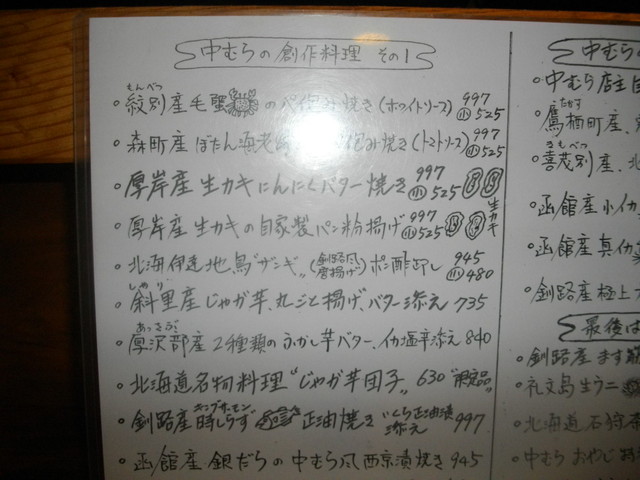 中むらの創作料理 その1
もんべつ
・紋別産毛蟹のパイ包み焼き(ホワイトソース) 997 小525
・森町産ぼたん海老 包み焼き(トマトソース) 997 小525
・厚岸産生カキにんにくバター焼き 997 小525
・厚岸産生カキの自家製パン粉揚げ 997 小525 生カキ
・北海伊達地鳥"ザンギ"(釧路風唐揚げ)ポン酢卸し 945 小480
しゃり
・斜里産じゃが芋、丸ごと揚げ、バター添え 735
あっさぶ
・厚沢部産2種類のふかし芋バター、イカ塩辛添え 840
・北海道名物料理"じゃが芋団子" 630 "限定品"
キングサーモン
・釧路産時しらず 正油焼き"いくら正油漬添え 997
・函館産銀だらの中むら風西京漬焼き 945
中むらの
・中むら店主自
たかす
・鷹栖町産、
きもべつ
・喜茂別産、北
・函館産小イカ
・函館産真イカ
・釧路産極上
最後は
・釧路産ます
・礼文島生ウニ
・北海道石狩
・中むらおやじ特